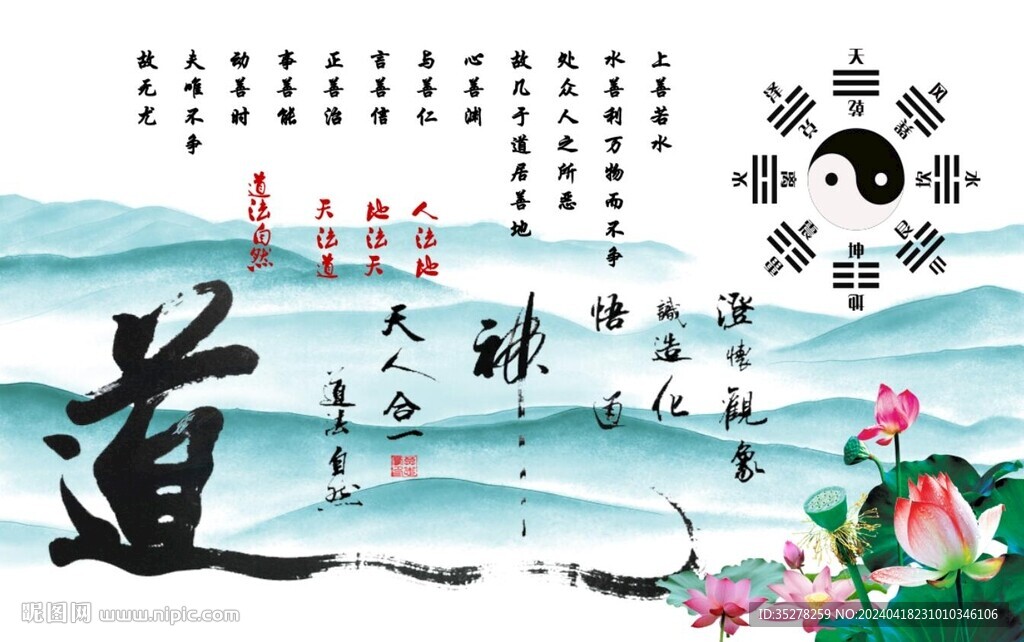 上善若水
水善利万物而不争
处众人之所恶
故几于道居善地
心善渊
与善仁
言善信
正善治
事善能
动善时
夫唯不争
故无尤
天
乾
风
巽
水
坎
山
地
坤
雷
震
火
離
泽
兑
人法地
地法天
天法道
道法自然
澄懷觀象
識造化
悟道
神
天人合一
道法自然
道
昵图网 www.nipic.com
ID:35278259 NO:20240418231010346106